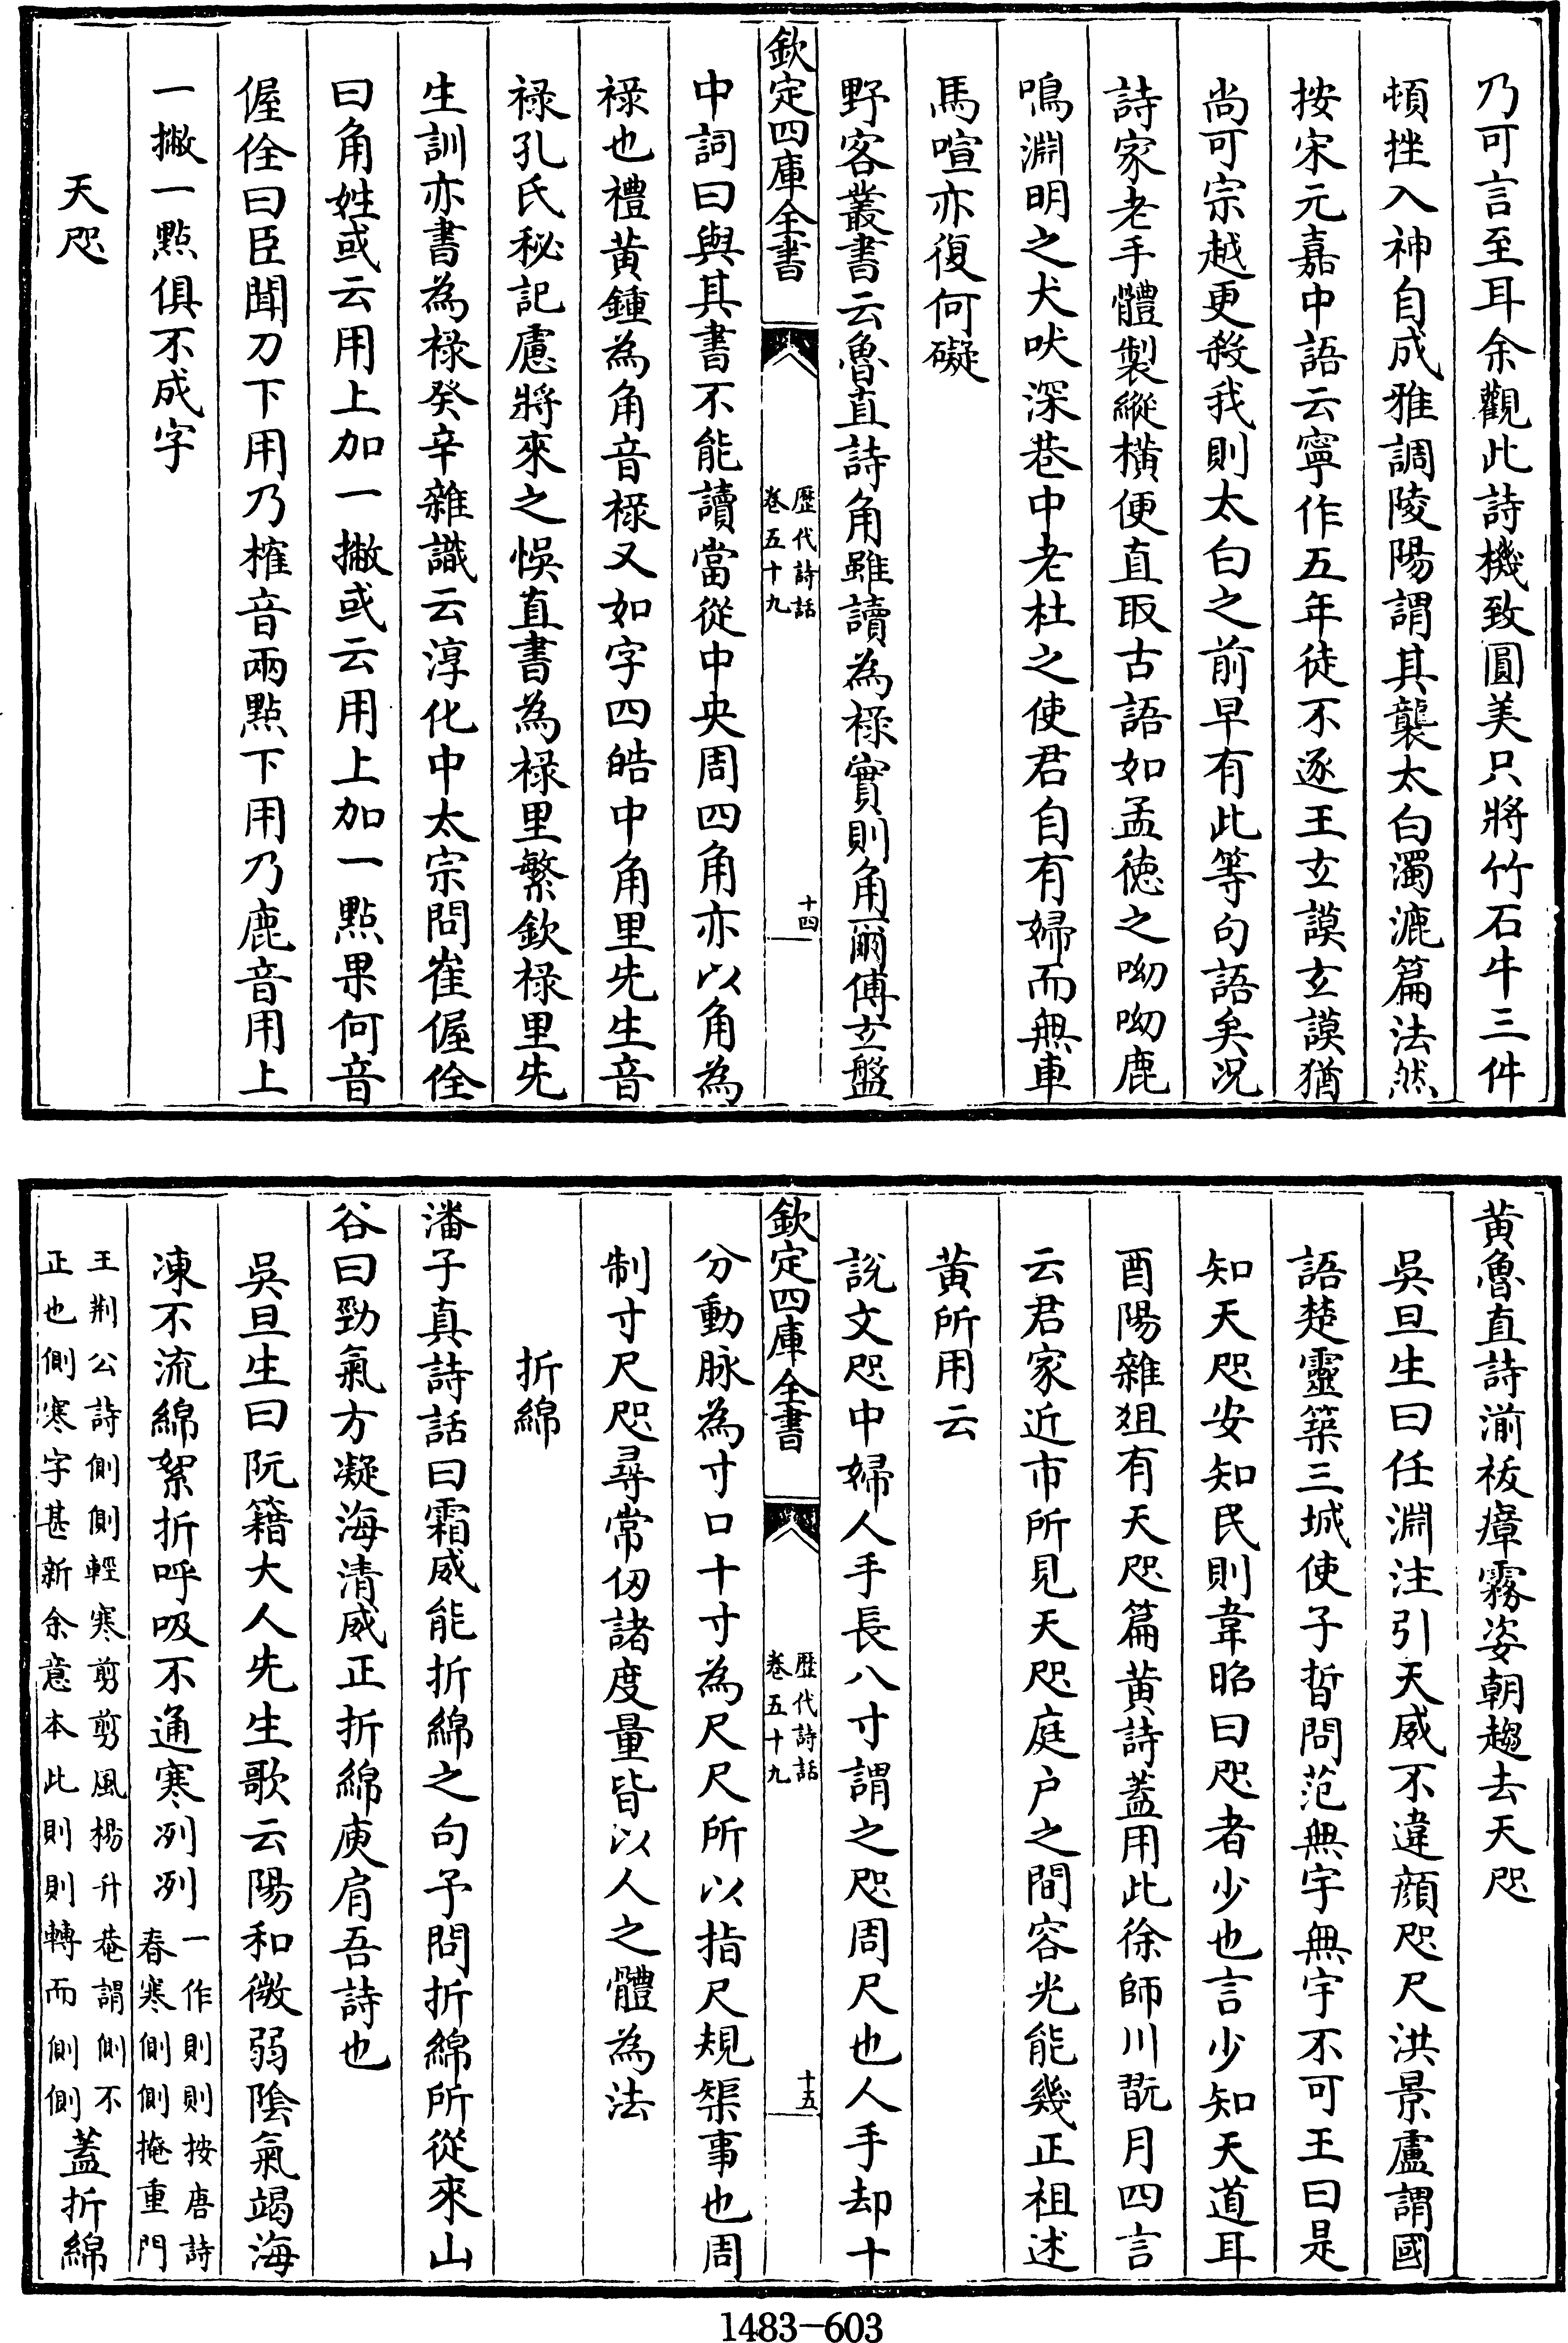 乃可言至耳余觀此詩機致圓美只將竹石牛三件
頓挫入神自成雅調陵陽謂其襲太白濁漉篇法然
按宋元嘉中語云寧作五年徒不逐王玄謨玄謨猶
尚可宗越更殺我則太白之前早有此等句語矣况
詩家老手體製縱橫便直取古語如孟徳之呦呦鹿
鳴淵明之犬吠深巷中老杜之使君自有婦而無車
馬喧亦復何礙
野客叢書云魯直詩角雖讀為禄實則角爾傅玄盤
欽定四庫全書
歷代詩話
卷五十九
十四
中詞曰與其書不能讀當從中央周四角亦以角為
禄也禮黄鍾為角音禄又如字四皓中角里先生音
禄孔氏秘記慮將來之悞直書為禄里繁欽禄里先
生訓亦書為禄癸辛雜識云淳化中太宗問崔偓佺
曰角姓或云用上加一撇或云用上加一點果何音
偓佺曰臣聞刀下用乃榷音兩點下用乃鹿音用上
一撇一點俱不成字
天咫
黄魯直詩湔祓瘴霧姿朝趨去天咫
吳旦生曰任淵注引天威不違顔咫尺洪景盧謂國
語楚靈築三城使子晳問范無宇無宇不可王曰是
知天咫安知民則韋昭曰咫者少也言少知天道耳
酉陽雜俎有天咫篇黄詩蓋用此徐師川翫月四言
云君家近市所見天咫庭户之間容光能幾正祖述
黄所用云
說文咫中婦人手長八寸謂之咫周尺也人手却十
欽定四庫全書
歷代詩話
卷五十九
十五
分動脉為寸口十寸為尺尺所以指尺規榘事也周
制寸尺咫尋常仞諸度量皆以人之體為法
折綿
潘子真詩話曰霜威能折綿之句予問折綿所從來山
谷曰勁氣方凝海清威正折綿庾肩吾詩也
吳旦生曰阮籍大人先生歌云陽和微弱陰氣竭海
凍不流綿絮折呼吸不通寒冽冽一作則則按唐詩
春寒側側掩重門
王荆公詩側側輕寒剪剪風楊升菴謂側不
正也側寒字甚新余意本此則則轉而側側蓋折綿
1483-603